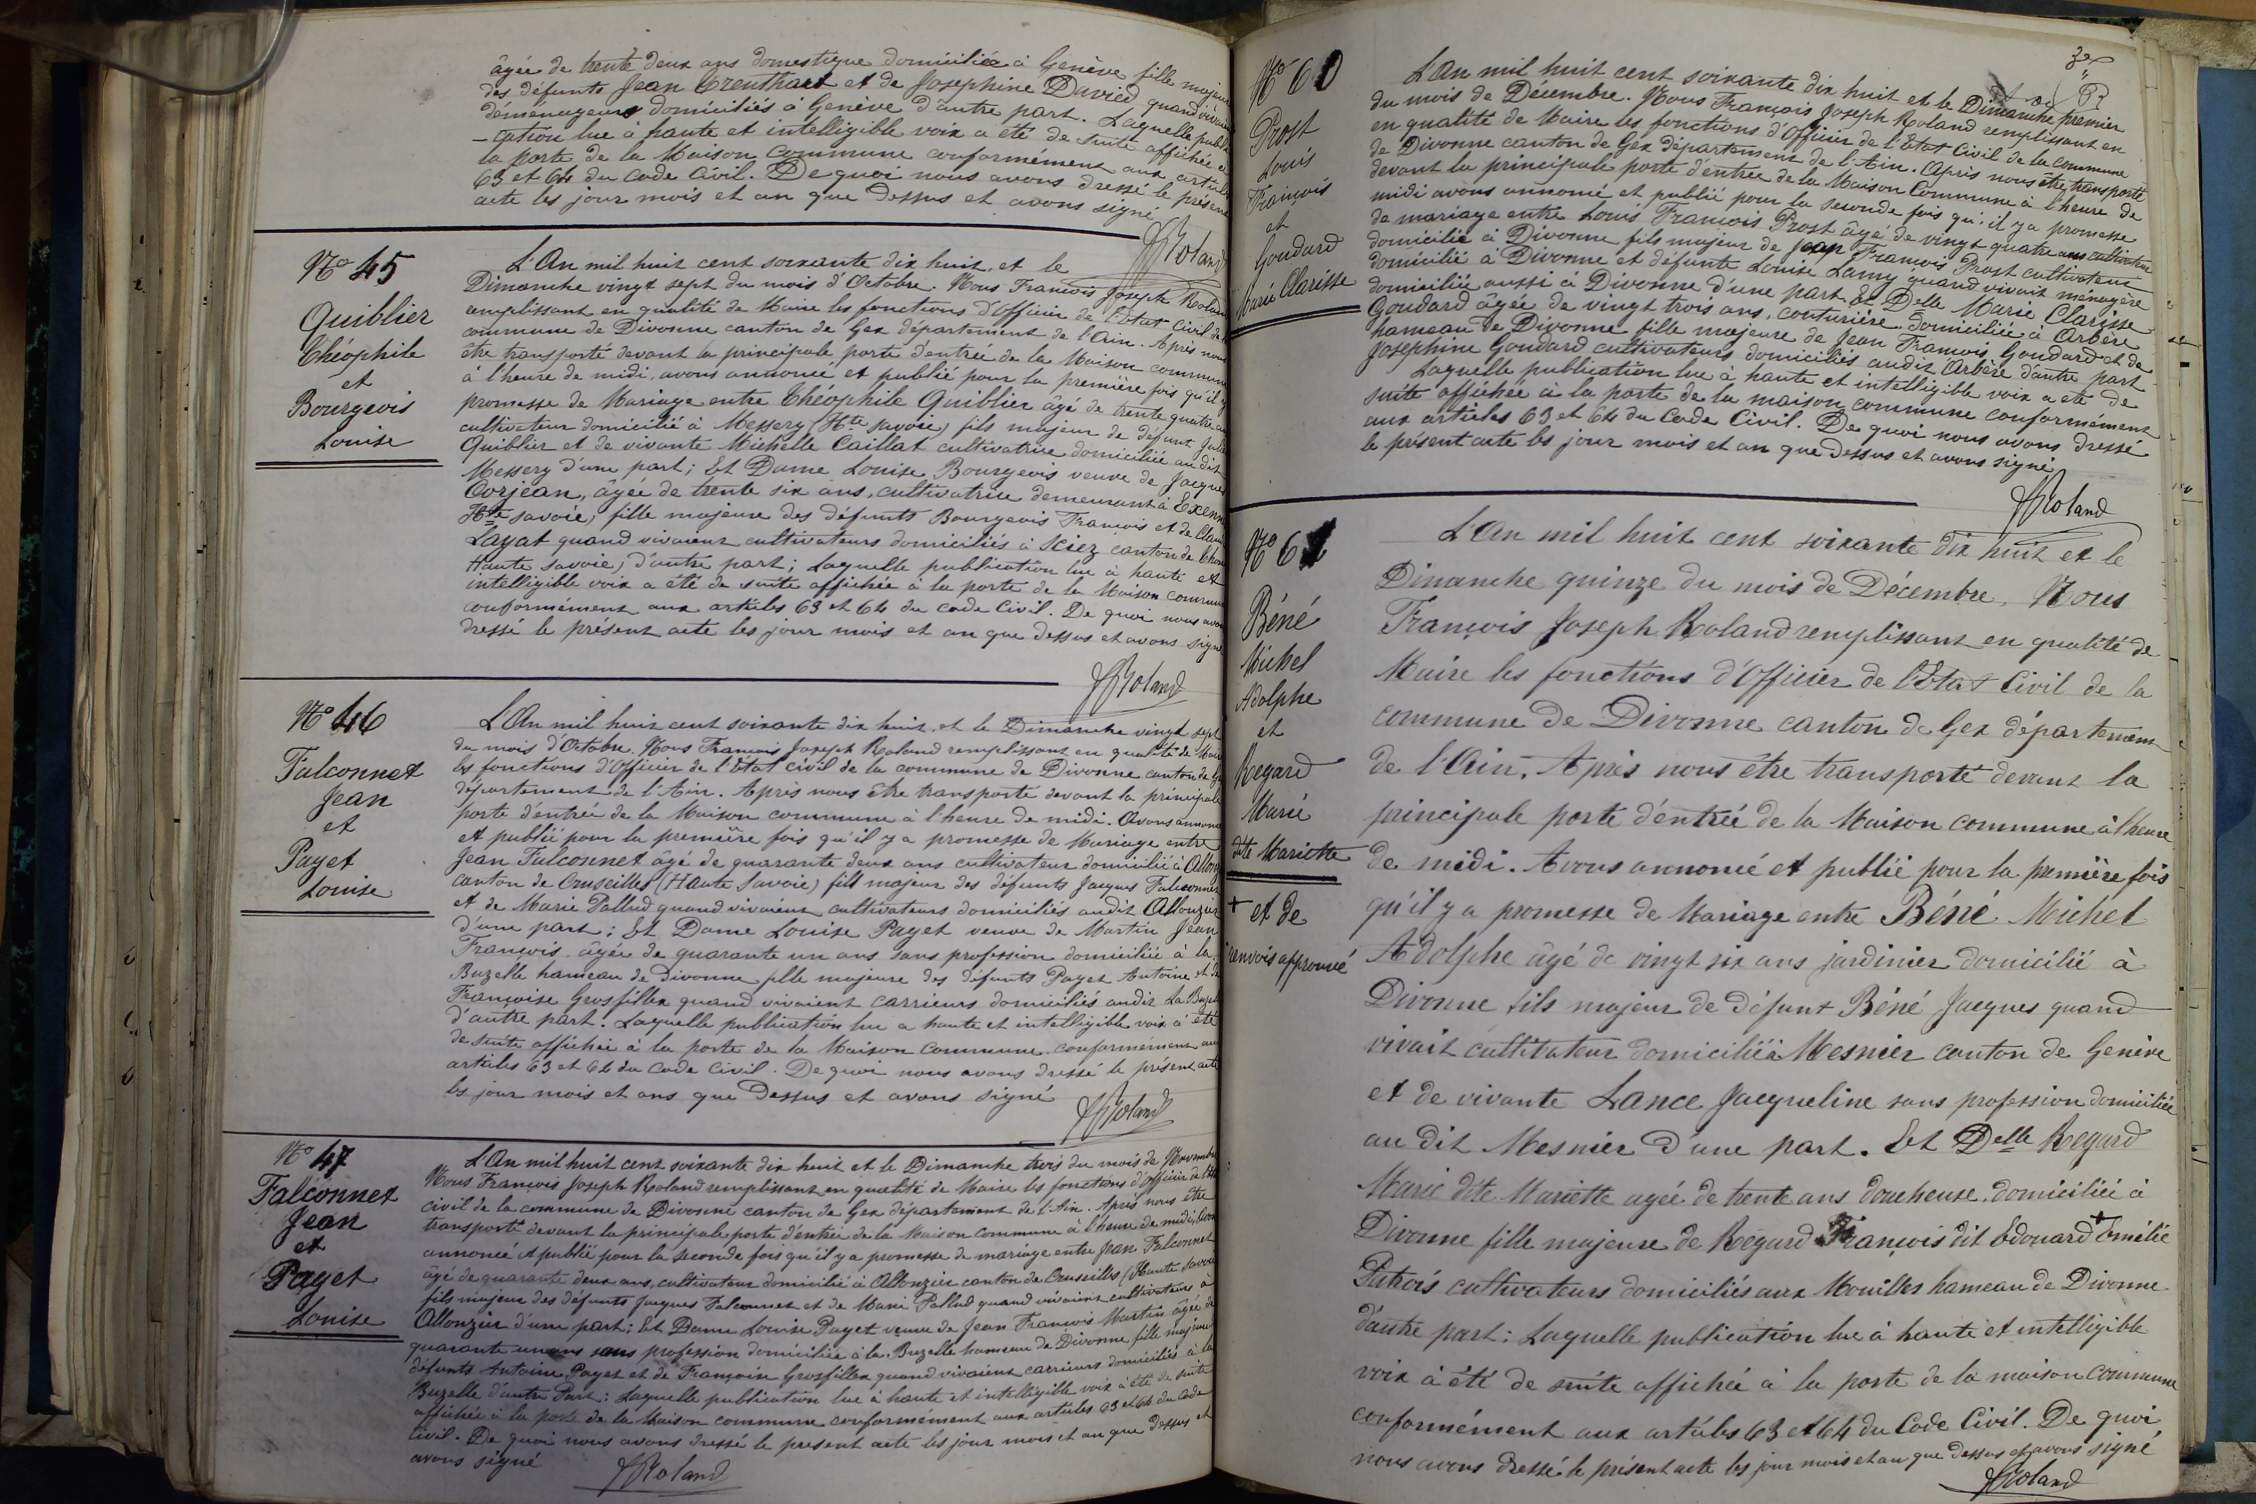 âgée de trente deux ans domestique domiciliée à Genève fille majeure
des défunts Jean Treuthard et de Josephine Duvied quand vivaient
déménageurs domiciliés à Genève d'autre part. Laquelle publi
-cation lue à haute et intelligible voix a été de suite affichée à
la porte de la Maison commune conformément aux articles
63 et 64 du Code Civil. De quoi nous avons dressé le présent
acte les jour mois et an que dessus et avons signé
JRoland
No 45
Quiblier
Théophile
et
Bourgeois
Louise
L'An mil huit cent soixante dix huit et le
Dimanche vingt sept du mois d'Octobre. Nous François Joseph Roland
remplissant en qualité de Maire les fonctions d'Officier de l'Etat Civil de la
commune de Divonne canton de Gex département de l'Ain. Après nous
être transporté devant la principale porte d'entrée de la Maison commune
à l'heure de midi, avons annoncé et publié pour la première fois qu'il y a
promesse de Mariage entre Théophile Quiblier âgé de trente quatre ans
cultivateur domicilié à Messery (Hte Savoie) fils majeur de défunt
Quiblier et de vivante Michelle Caillat cultivatrice domiciliée au dit
Messery d'une part; Et Dame Louise Bourgeois veuve de Jacques
Corjean, âgée de trente six ans, cultivatrice demeurant à
Hte Savoie) fille majeure des défunts Bourgeois François et de
Layat quand vivaient cultivateurs domiciliés à Sciez canton de
Haute Savoie) d'autre part; Laquelle publication lue à haute et
intelligible voix a été de suite affichée à la porte de la Maison commune
conformément aux articles 63 et 64 du code Civil. De quoi nous avons
dressé le présent acte les jour mois et an que dessus et avons signé
JRoland
No 46
Falconnet
Jean
et
Paget
Louise
L'An mil huit cent soixante dix huit et le Dimanche vingt sept
du mois d'Octobre. Nous François Joseph Roland remplissant en qualité de Maire
les fonctions d'Officier de l'Etat civil de la commune de Divonne canton de Gex
département de l'Ain. Après nous être transporté devant la principale
porte d'entrée de la Maison commune à l'heure de midi. Avons annoncé
et publié pour la première fois qu'il y a promesse de Mariage entre
Jean Falconnet âgé de quarante deux ans cultivateur domicilié à Allonzier
canton de Cruseilles (Haute Savoie) fils majeur des défunts Jacques Falconnet
et de Marie Pallud quand vivaient cultivateurs domiciliés audit Allonzier
d'une part; Et Dame Louise Paget veuve de Martin Jean
François âgée de quarante un ans sans profession domiciliée à la
Buzelle hameau de Divonne fille majeure des défunts Paget Antoine et de
Françoise Grosfillex quand vivaient carrieurs domiciliés audit La Buzelle
d'autre part. Laquelle publication lue à haute et intelligible voix à été
de suite affichée à la porte de la Maison Commune conformément aux
articles 63 et 64 du code Civil. De quoi nous avons dressé le présent acte
les jour mois et ans que Dessus et avons signé
JRoland
No 47
Falconnet
Jean
et
Paget
Louise
L'An mil huit cent soixante dix huit et le Dimanche trois du mois de Novembre
Nous François Joseph Roland remplissant en qualité de Maire les fonctions d'Officier de l'Etat
civil de la commune de Divonne canton de Gex département de l'Ain. Après nous être
transporté devant la principale porte d'entrée de la Maison commune à l'heure de midi, avons
annoncé et publié pour la seconde fois qu'il y a promesse de mariage entre Jean Falconnet
âgé de quarante deux ans, cultivateur domicilié à Allonzier canton de Cruseilles (Haute Savoie
fils majeur des défunts Jacques Falconnet et de Marie Pallud quand vivaient cultivateurs à
Allonzier d'une part; Et Dame Louise Paget veuve de Jean François Martin âgée de
quarante un ans sans profession domiciliée à la Buzelle hameau de Divonne fille majeure
défunts Antoine Paget et de Françoise Grosfillex quand vivaient carrieurs domiciliés à la
Buzelle d'autre Part; Laquelle publication lue à haute et intelligible voix à été de suite
affichée à la porte de la Maison commune conformément aux articles 63 et 64 du Code
Civil. De quoi nous avons dressé le présent acte les jour mois et an que dessus et
avons signé
JRoland
No 60
Prost
Louis
François
et
Goudard
Marie Clarisse
L'An mil huit cent soixante dix huit et le Dimanche premier
du mois de Décembre. Nous François Joseph Roland remplissant en
en qualité de Maire les fonctions d'Officier de l'Etat Civil de la commune
de Divonne canton de Gex département de l'Ain. Après nous être transporté
devant la principale porte d'entrée de la Maison Commune à l'heure de
midi avons annoncé et publié pour la seconde fois qu'il y a promesse
de mariage entre Louis François Prost âgé de vingt quatre ans cultivateur
domicilié à Divonne fils majeur de Jean François Prost cultivateur
domicilié à Divonne et défunte Louise Lamy quand vivait ménagère
domiciliée aussi à Divonne d'une part. Et Delle Marie Clarisse
Goudard âgée de vingt trois ans, couturière domiciliée à Arbère
hameau de Divonne fille majeure de Jean François Goudard et de
Josephine Goudard cultivateurs domiciliés audit Arbère d'autre part
Laquelle publication lue à haute et intelligible voix a été de
suite affichée à la porte de la maison commune conformément
aux articles 63 et 64 du Code Civil. De quoi nous avons dressé
le présent acte les jour mois et an que dessus et avons signé
JRoland
No 61
Béné
Michel
Adolphe
et
Regard
Marie
dite Mariette
+ et de
renvois approuvé
L'An mil huit cent soixante dix huit et le
Dimanche quinze du mois de Décembre. Nous
François Joseph Roland remplissant en qualité de
Maire les fonctions d'Officier de l'Etat Civil de la
commune de Divonne canton de Gex département
de l'Ain. Après nous être transporté devant la
principale porte d'entrée de la Maison commune à l'heure
de midi. Avons annoncé et publié pour la première fois
qu'il y a promesse de Mariage entre Béné Michel
Adolphe âgé de vingt six ans jardinier domicilié à
Divonne fils majeur de défunt Béné Jacques quand
vivait cultivateur domicilié à Mesnier canton de Genève
et de vivante Lance Jacqueline sans profession domiciliée
au dit Mesnier d'une part. Et Delle Regard
Marie dite Mariette agée de trente ans doucheuse domiciliée à
Divonne fille majeure de Regard François dit Edouard + Emélie
Patrois cultivateurs domiciliés aux Mouilles hameau de Divonne
d'autre part: Laquelle publication lue à haute et intelligible
voix à été de suite affichée à la porte de la maison commune
conformément aux articles 63 et 64 du Code Civil. De quoi
nous avons dressé le présent acte les jour mois et an que dessus et avons signé
JRoland